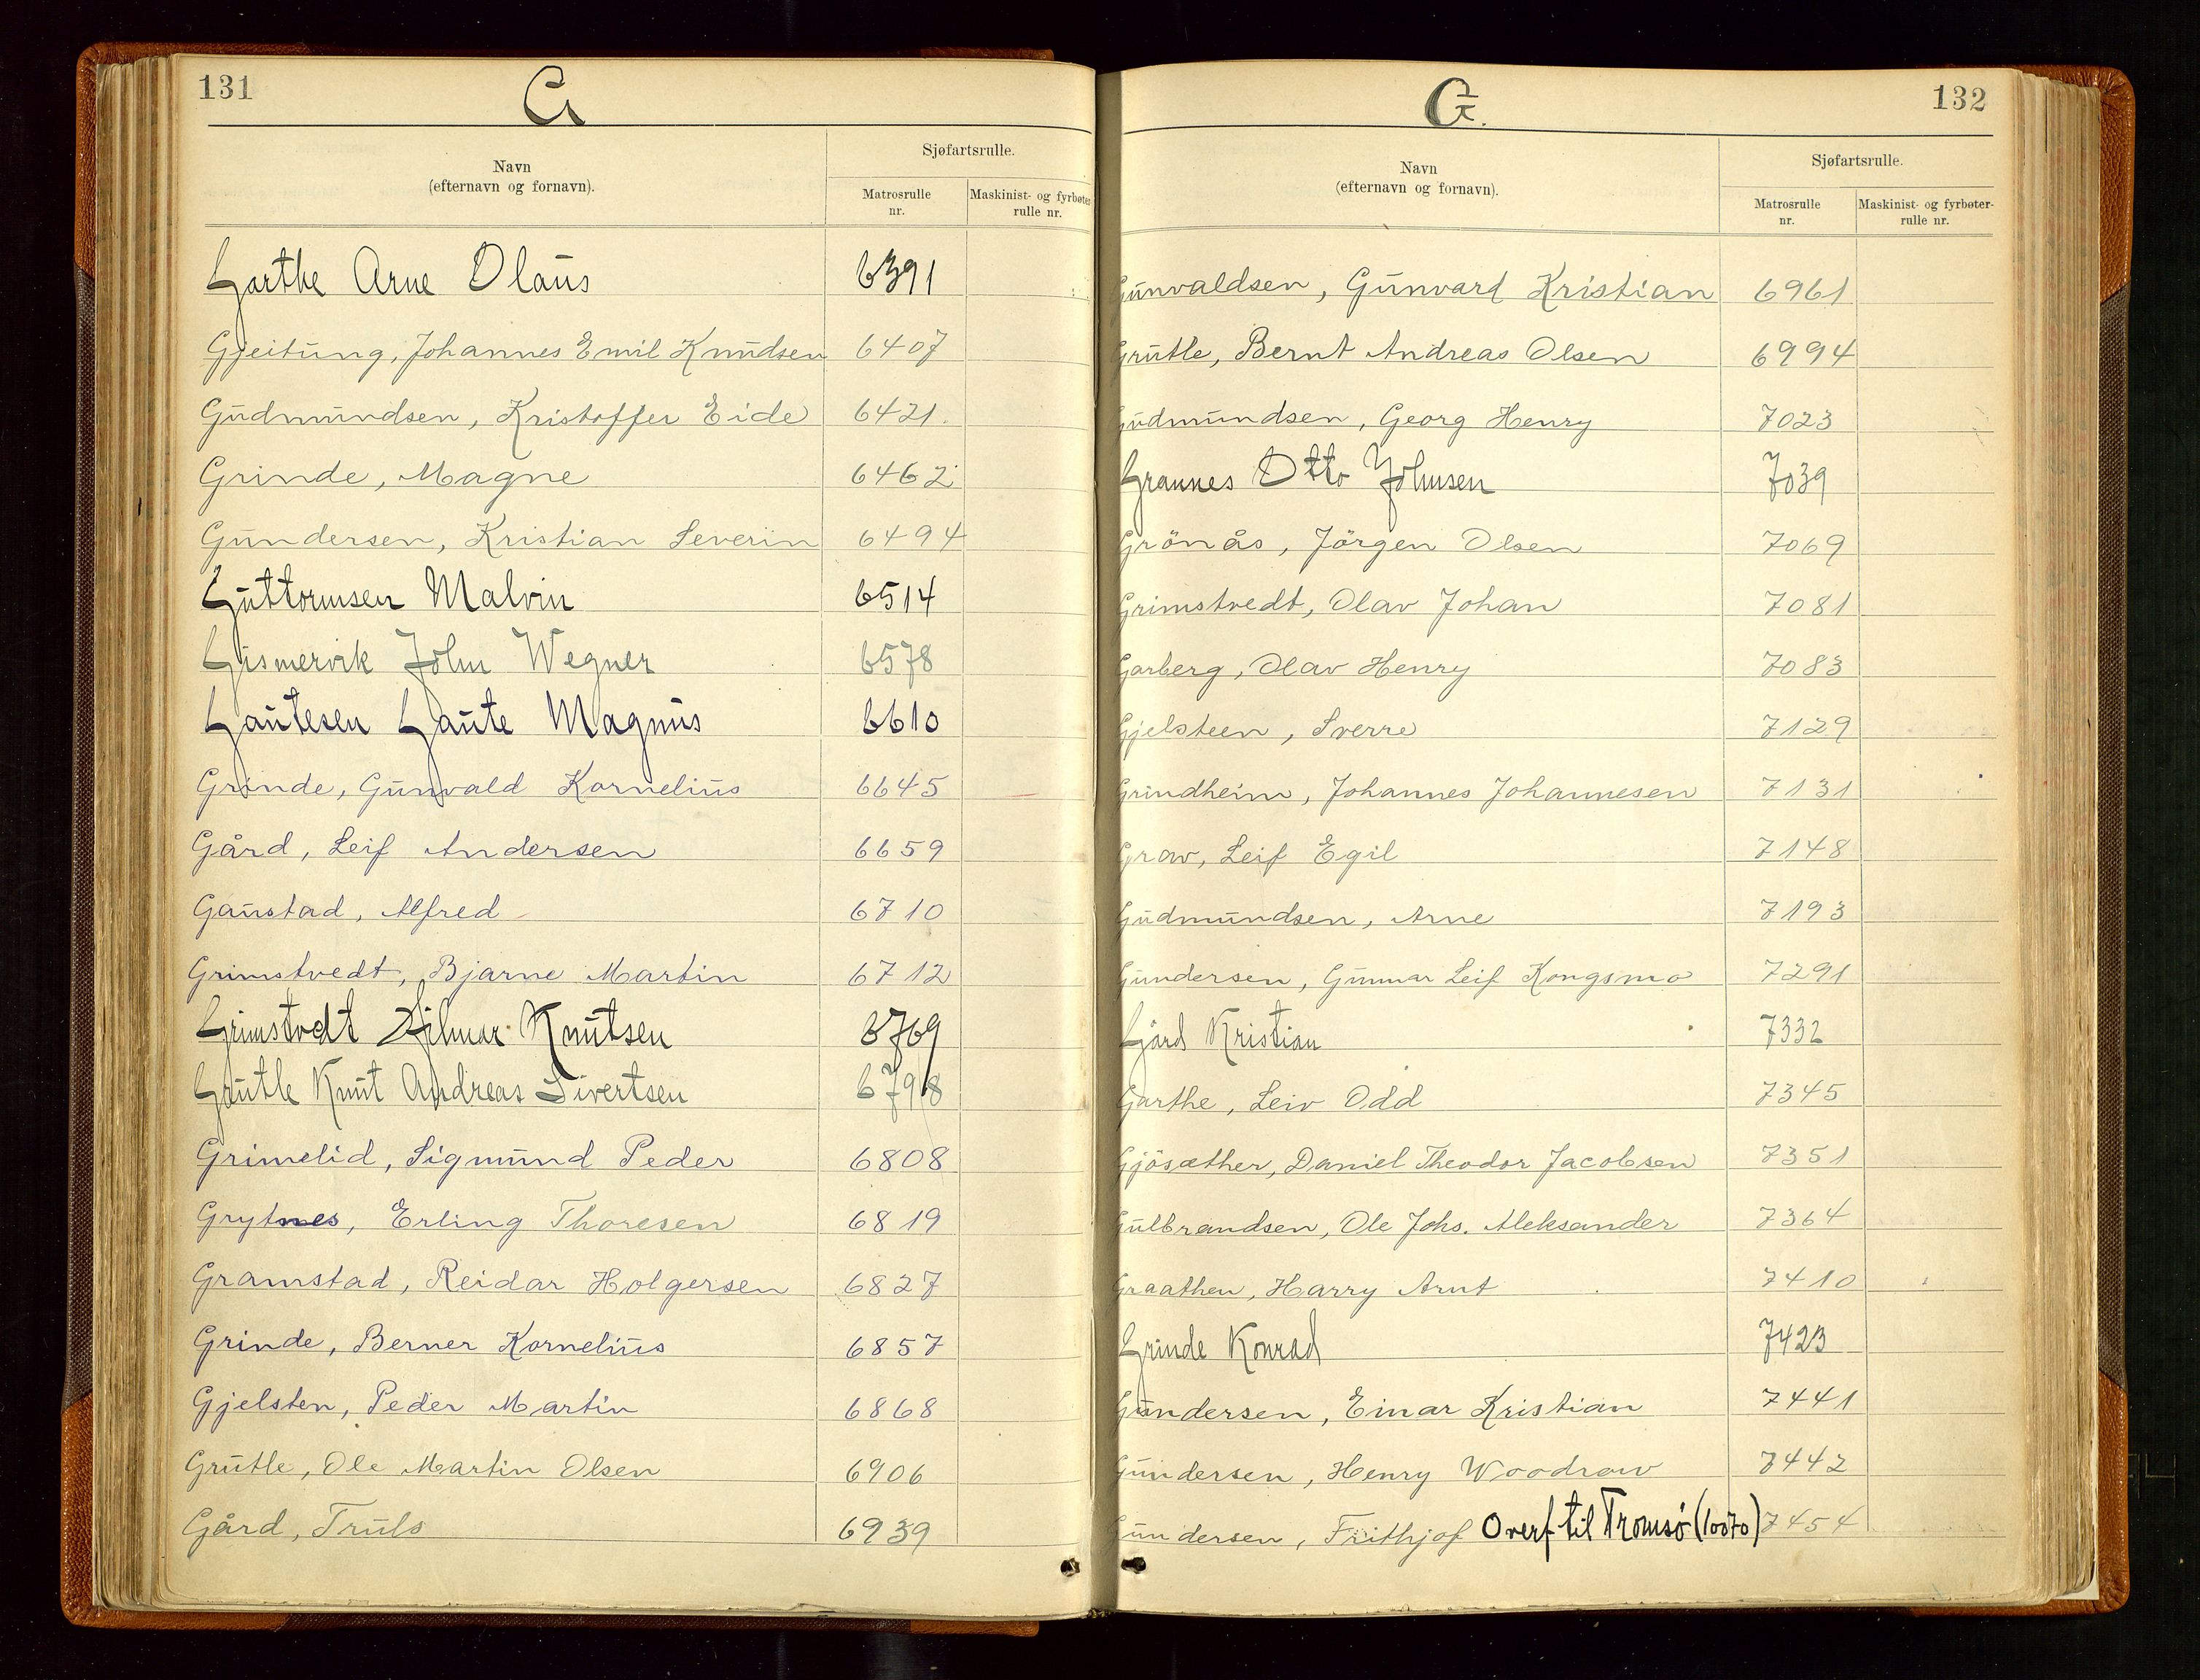 131
G
Navn
(efternavn og fornavn).
Sjøfartsrulle.
Matrosrulle
nr.
Maskinist- og fyrbøter
rulle nr.
Garthe Arne Olaus 6391
Gjeitung, Johannes Emil Knudsen 6407
Gudmundsen, Kristoffer Eide 6421
Grinde, Magne 6462
Gundersen, Kristian Severin 6494
Guttormsen Malvin 6514
Gismervik John Wegner 6578
Gautesen Gaute Magnus 6610
Grinde, Gunvald Kornelius 6645
Gård, Leif Andersen 6659
Gaustad, Alfred 6710
Grimstvedt, Bjarne Martin 6712
Grimstvedt Hilmar Knutsen 6769
Grutle Knut Andreas Sivertsen 6798
Grimelid, Sigmund Peder 6808
Grytnes, Erling Thoresen 6819
Gramstad, Reidar Holgersen 6827
Grinde, Berner Kornelius 6857
Gjelsten, Peder Martin 6868
Grutle, Ole Martin Olsen 6906
Gård, Truls 6939
132
G.
Navn
(efternavn og fornavn).
Sjøfartsrulle.
Matrosrulle
nr.
Maskinist- og fyrbøter-
rulle nr.
Gunvaldsen, Gunvard Kristian 6961
Grutle, Bernt Andreas Olsen 6994
Gudmundsen, Georg Henry 7023
Grannes Otto Johnsen 7039
Grönås, Jörgen Olsen 7069
Grimstvedt, Olav Johan 7081
Garberg, Olav Henry 7083
Gjelsteen, Sverre 7129
Grindheim, Johannes Johannesen 7131
Grav, Leif Egil 7148
Gudmundsen, Arne 7193
Gundersen, Gunnar Leif Kongsmo 7291
Gård Kristian 7332
Garthe, Leiv Odd 7345
Gjösæther, Daniel Theodor Jacobsen 7351
Gulbrandsen, Ole Johs. Aleksander 7364
Graathen, Harry Arnt 7410
Grinde Konrad 7423
Gundersen, Einar Kristian 7441
Gundersen, Henry Woodrow 7442
Gundersen, Frithjof Overf til Tromsö (10070) 7454